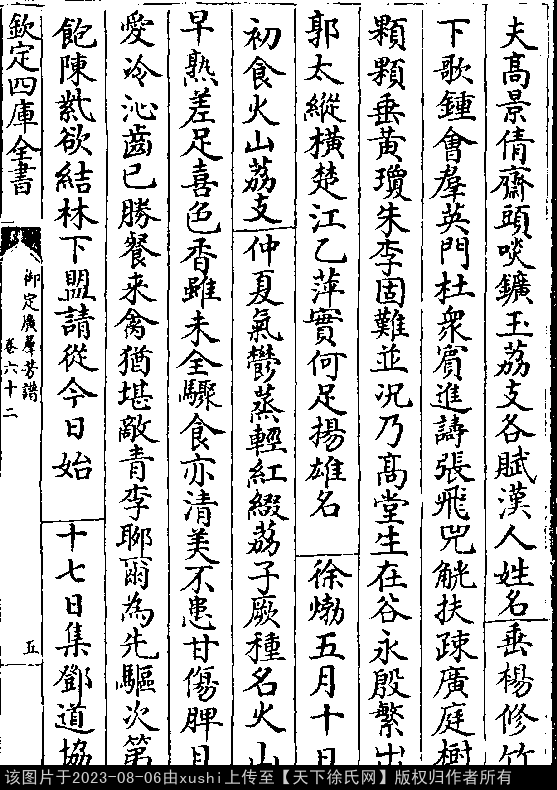 夫高景倩齋頭啖鑛玉荔支各賦漢人姓名垂楊修竹
下歌鍾會羣英門杜衆賓進譸張飛兕觥扶疎廣庭樹
顆顆垂黃瓊朱李固難並況乃高堂生在谷永殷繁出
郭太縱橫楚江乙萍實何足揚雄名 徐𤊹五月十日
初食火山荔支仲夏氣鬱蒸輕紅綴荔子厥種名火山
早熟差足喜色香雖未全驟食亦清美不患甘傷脾且
愛冷沁齒已勝餐來禽猶堪敵青李聊爾為先驅次第
飽陳紫欲結林下盟請從今日始 十七日集鄧道協
欽定四庫全書
御定廣羣芳譜
卷六十二
五
该图片于2023-08-06由xushi上传至【天下徐氏网】版权归作者所有